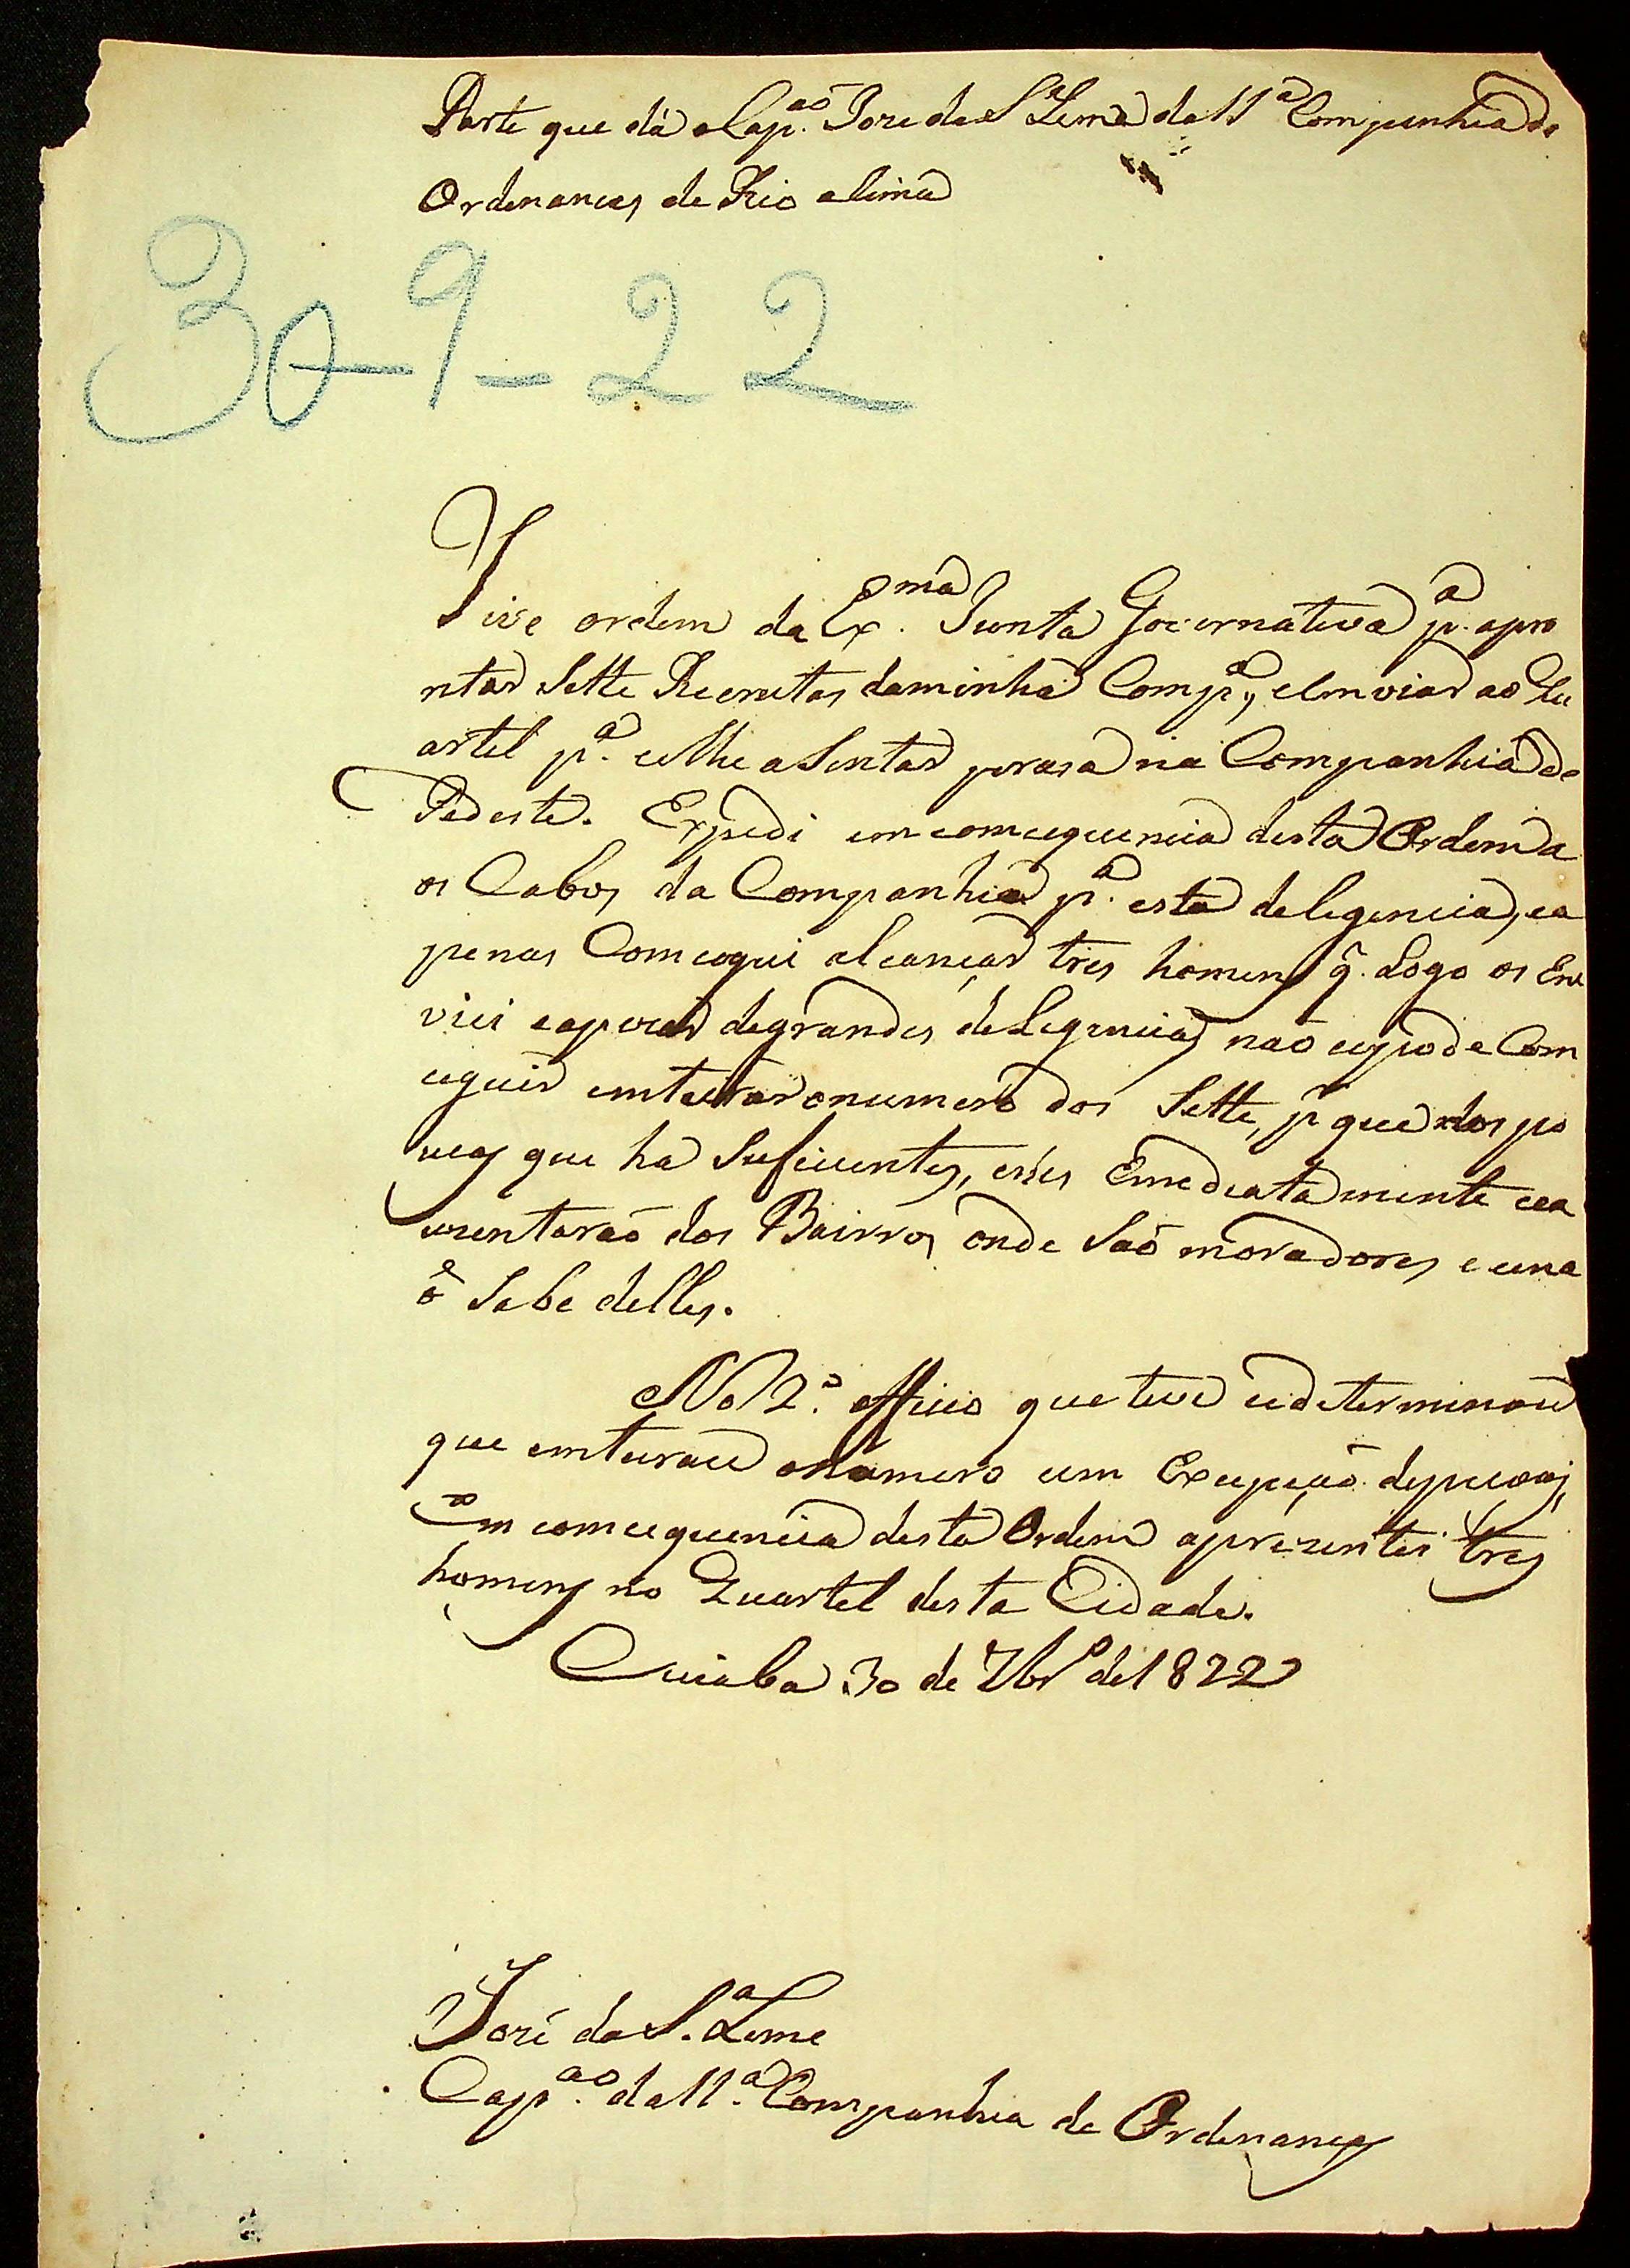 Parte que dá o Cap.ᵃᵒ Joze da S.ᵃ Leme da 11ª Companhia de
Ordenancas de Rio aSima
30-9-22
Tive ordem da Ex.ᵐᵃ Junta Governativa p.ᵃ apro
ntar Sette Recrutas daminha Comp.ᵃ, eImviar ao Qu
artel p.ᵃ celhe aSentar praza na Companhia de
Pedeste. Expedi em comcequencia desta Ordem a
os Cabos da Companhia p.ᵃ esta deligencia, ea
penas Comcegui alcançar tres homens q̃. Logo os En
viei eapezar degrandes deLigencias não cepode Com
ceguir emteirar onumero dos Sette, p.ʳ que dos po
ucos que ha Suficientes, esses Emediatamente cea
uzentarão dos Bairros onde São moradores e cena
õ Sabe delles.
No 2.º officio que tive cedeterminou
que emteirace onumero cem Excepção depecoas,
Em comcequencia desta Ordem aprezentei tres
homens no Quartel desta Cidade.
Cuiaba 30 de 7bʳᵒ de 1822
Jozé da S.ᵃ Leme
Cap.ᵃᵒ da 11.ª Companhia de Ordenancas